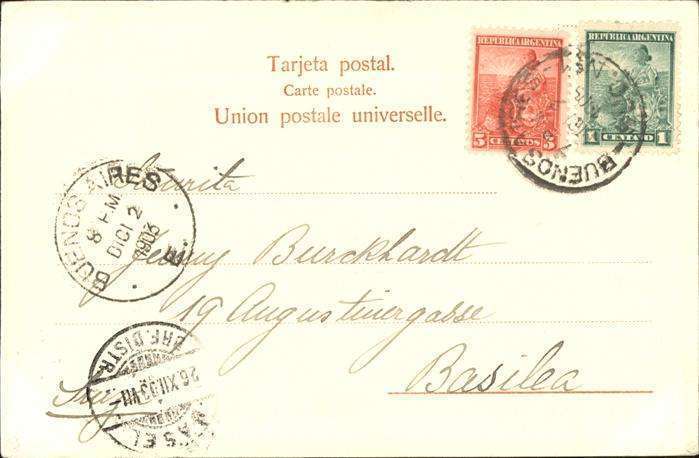 Tarjeta postal.
Carte postale.
Union postale universelle.
REPUBLICA ARGENTINA
5 CENTAVOS 5
REPUBLICA ARGENTINA
1 CENTAVO 1
BUENOS
BUENOS AIRES
8 PM
DIC 2
1903
Jenny Burckhardt
19 Augustinergasse
Basilea
BRF. DISTR.
26.XII.03.VII
BASEL